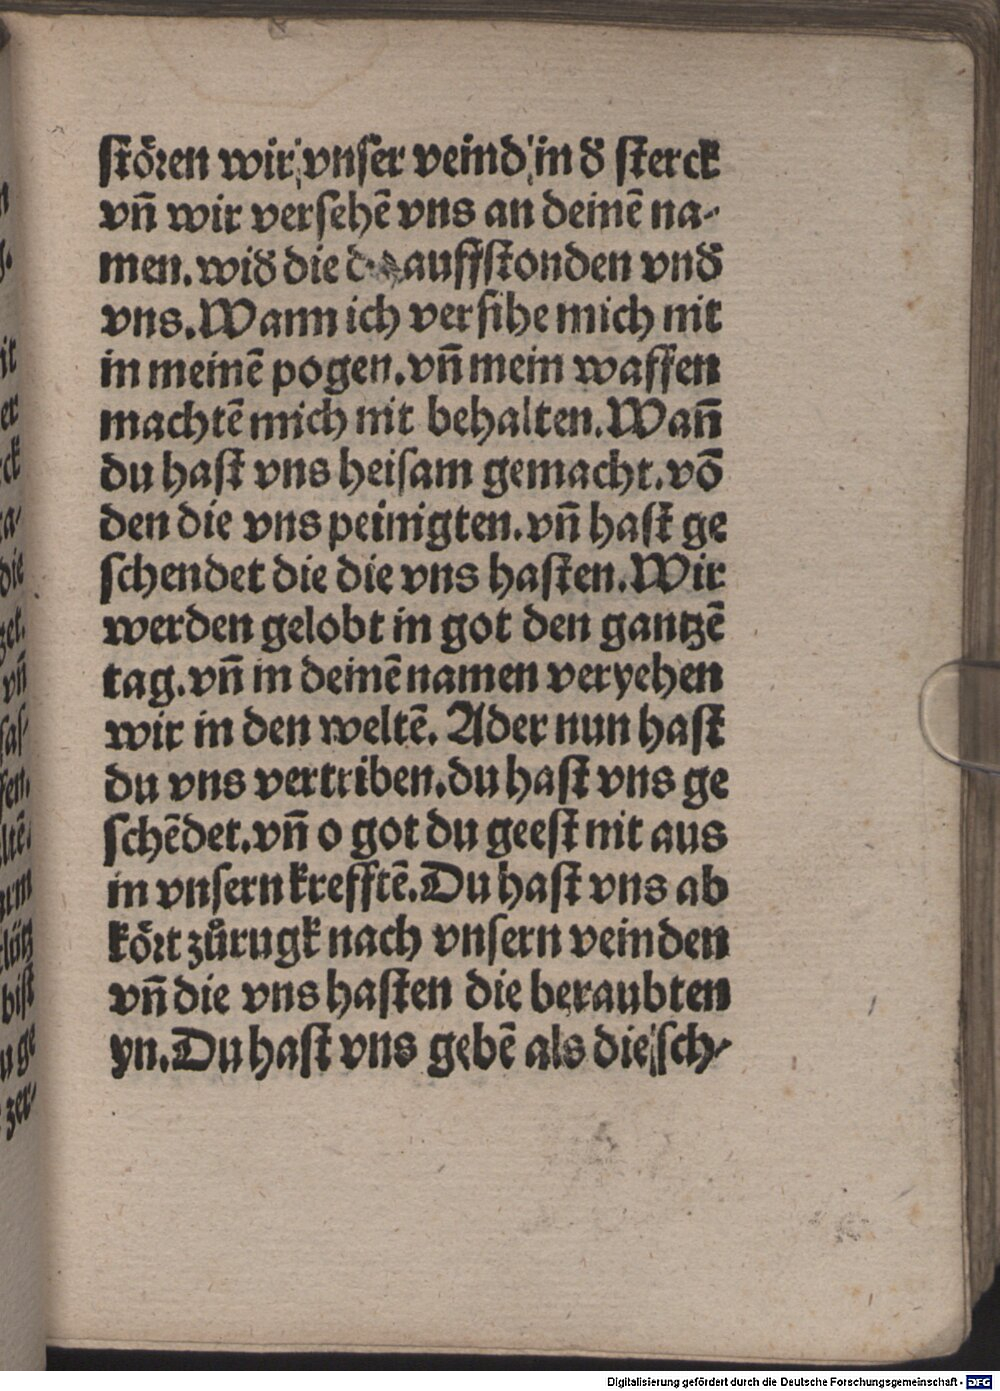 ſtören wir vnſer veind in đ ſterck
vn̄ wir verſehē vns an deinē na-
men. wiđ die auffſtonden vnđ
vns. Wann ich verſihe mich nit
in meinē pogen. vn̄ mein waffen
machtē mich nit behalten. Wan̄
du haſt vns heiſam gemacht. vō
den die vns peinigten. vn̄ haſt ge
ſchendet die die vns haſten. Wir
werden gelobt in got den gantzē
tag. vn̄ in deinē namen veryehen
wir in den weltē. Ader nun haſt
du vns vertriben. du haſt vns ge
ſchēdet. vn̄ o got du geeſt nit aus
in vnſern krefftē. Du haſt vns ab
kört zůrugk nach vnſern veinden
vn̄ die vns haſten die beraubten
yn. Du haſt vns gebē als die ſch-
Digitalisierung gefördert durch die Deutsche Forschungsgemeinschaft - DFG